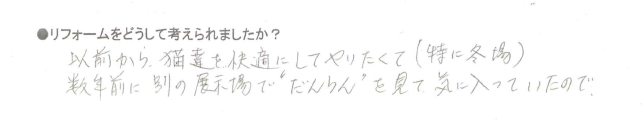 ●リフォームをどうして考えられましたか？
以前から、猫達を快適にしてやりたくて（特に冬場）
数年前に別の展示場で"だんらん"を見て気に入っていたので.